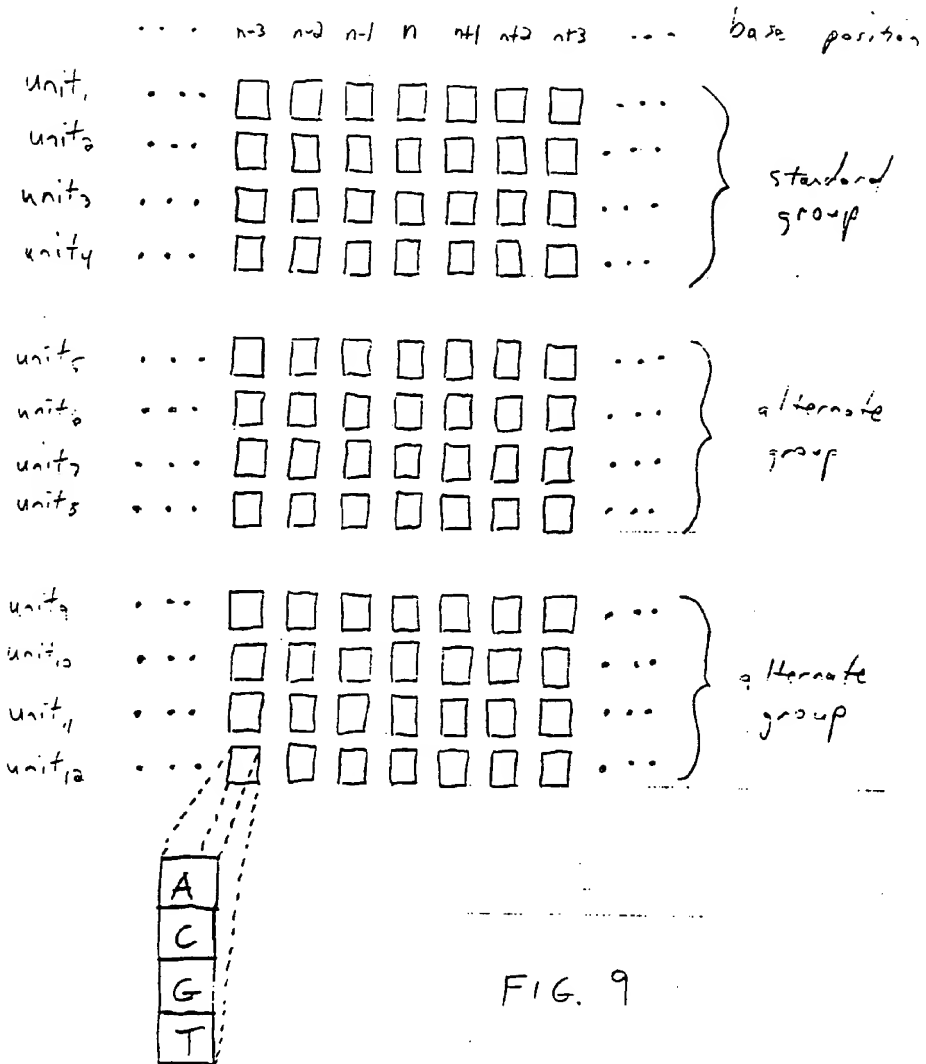 . . . n-3 n-2 n-1 n n+1 n+2 n+3 . . . base position
unit₁ . . . . . .
unit₂ . . . . . .
unit₃ . . . . . .
unit₄ . . . . . .
standard
group
unit₅ . . . . . .
unit₆ . . . . . .
unit₇ . . . . . .
unit₈ . . . . . .
alternate
group
unit₉ . . . . . .
unit₁₀ . . . . . .
unit₁₁ . . . . . .
unit₁₂ . . . . . .
alternate
group
A
C
G
T
FIG. 9